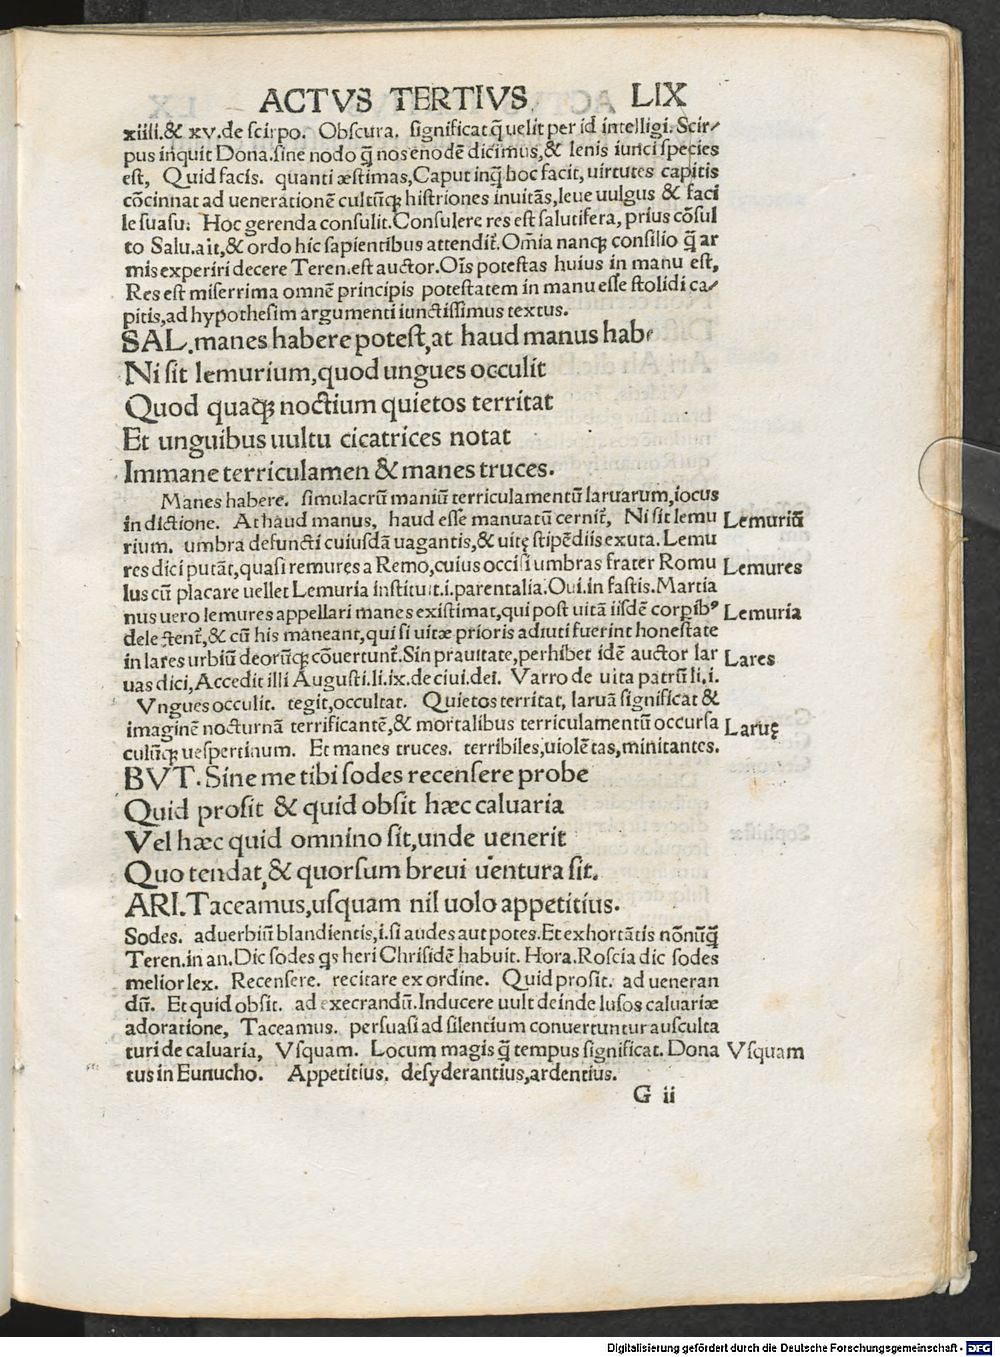 ACTVS TERTIVS. LIX
xiiii.& xv.de scirpo. Obscura. significat q̃ uelit per id intelligi. Scir⸗
pus inquit Dona.sine nodo q̃ nos enodẽ dicimus,& lenis iunci species
est, Quid facis. quanti æstimas,Caput inq̃ hoc facit, uirtutes capitis
cõcinnat ad uenerationẽ cultũq; histriones inuitãs, leue uulgus & faci
le suasu: Hoc gerenda consulit.Consulere res est salutifera, prius cõsul
to Salu.ait,& ordo hic sapientibus attendit̃.Om̃ia nanq; consilio q̃ ar
mis experiri decere Teren.est auctor.Oĩs potestas huius in manu est,
Res est miserrima omnẽ principis potestatem in manu esse stolidi ca⸗
pitis,ad hypothesim argumenti iunctissimus textus.
SAL.manes habere potest,at haud manus habe
Ni sit lemurium,quod ungues occulit
Quod quaq; noctium quietos territat
Et unguibus uultu cicatrices notat
Immane terriculamen & manes truces.
Manes habere. simulacrũ maniũ terriculamentũ laruarum, iocus
in dictione. At haud manus, haud esse manuatũ cernit̃, Ni sit lemu Lemuriũ
rium. umbra defuncti cuiusdã uagantis,& uitę stipẽdiis exuta. Lemu
res dici putãt,quasi remures a Remo,cuius occisi umbras frater Romu Lemures
lus cũ placare uellet Lemuria instituit.i.parentalia.Oui.in fastis.Martia
nus uero lemures appellari manes existimat,qui post uitã iisdẽ corꝑibꝰ Lemuria
delectent̃,& cũ his maneant,qui si uitæ prioris adiuti fuerint honestate
in lares urbiũ deorũq; cõuertunt̃.Sin prauitate,perhibet idẽ auctor lar Lares
uas dici,Accedit illi Augusti.li.ix.de ciui.dei. Varro de uita patrũ li.i.
Vngues occulit. tegit,occultat. Quietos territat, laruã significat &
imaginẽ nocturnã terrificantẽ,& mortalibus terriculamentũ occursa Laruę
culũq; uespertinum. Et manes truces. terribiles,uiolẽtas,minitantes.
BVT. Sine me tibi sodes recensere probe
Quid prosit & quid obsit hæc caluaria
Vel hæc quid omnino sit,unde uenerit
Quo tendat,& quorsum breui uentura sit.
ARI.Taceamus,usquam nil uolo appetitius.
Sodes. aduerbiũ blandientis,i.si audes aut potes.Et exhortãtis nõnũq̃
Teren.in an.Dic sodes qs heri Chrisidẽ habuit. Hora.Roscia dic sodes
melior lex. Recensere. recitare ex ordine. Quid prosit. ad ueneran
dũ. Et quid obsit. ad execrandũ.Inducere uult deinde lusos caluariæ
adoratione, Taceamus. persuasi ad silentium conuertuntur ausculta
turi de caluaria, Vsquam. Locum magis q̃ tempus significat. Dona Vsquam
tus in Eunucho. Appetitius. desyderantius,ardentius.
G ii
Digitalisierung gefördert durch die Deutsche Forschungsgemeinschaft - DFG